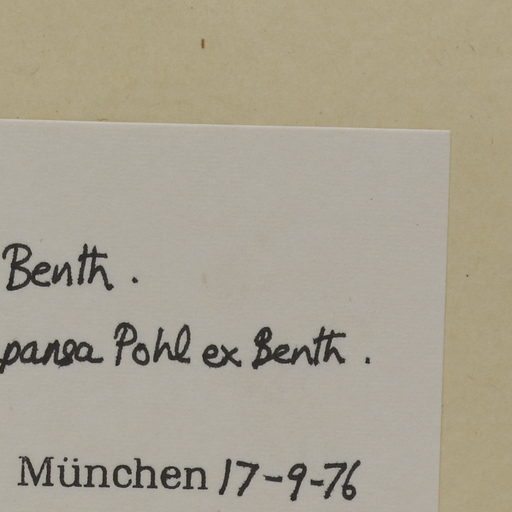 Benth.
pansa Pohl ex Benth.
München 17-9-76